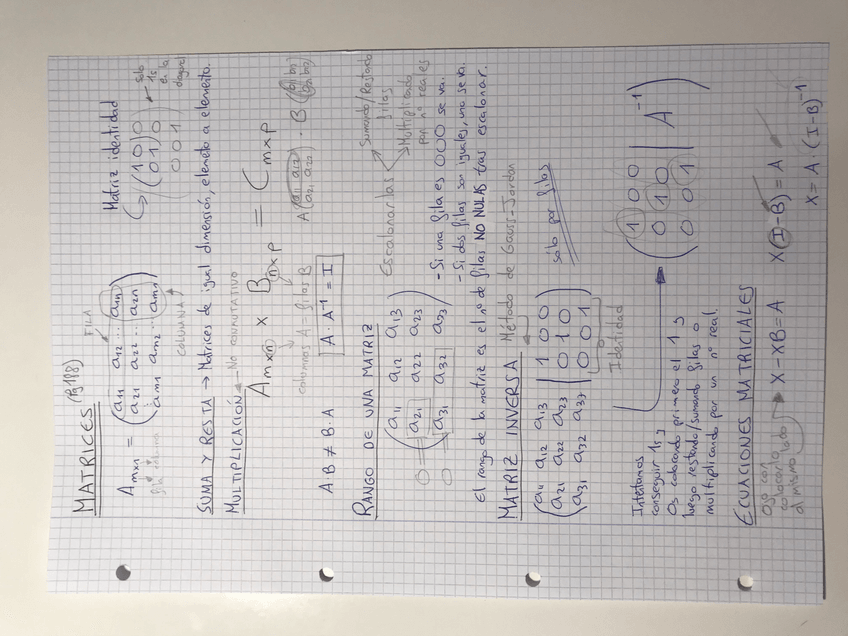 MATRICES (Pg 188)
FILA
Amxn = (a11 a12 ... a1n
a21 a22 ... a2n
am1 am2 ... amn)
COLUMNA
Matriz identidad
(1 0 0
0 1 0
0 0 1)
Solo 1s en la diagonal
SUMA Y RESTA → Matrices de igual dimensión, elemeto a elemento.
MULTIPLICACIÓN → No conmutativo
Amxn x Bnxp = Cmxp
columnas A = filas B
A (a11 a12
a21 a22) · B
A B ≠ B·A
A · A⁻¹ = I
RANGO DE UNA MATRIZ
(a11 a12 a13
0 = a21 a22 a23
0 = a31 a32 a33)
Escalonarlas
Sumando/Restado filas
Multiplicado por nº reales
- Si una fila es 000 se va.
- Si dos filas son iguales, una se va.
El rango de la matriz es el nº de filas NO NULAS tras escalonar.
MATRIZ INVERSA → Método de Gauss-Jordan
(a11 a12 a13 | 1 0 0
a21 a22 a23 | 0 1 0
a31 a32 a33 | 0 0 1)
Identidad
sólo por filas
Intentamos
conseguir 1s y
0s colocando primero el 1 y
luego restando/sumando filas o
multiplicando por un nº real.
(1 0 0
0 1 0 | A⁻¹
0 0 1)
ECUACIONES MATRICIALES
Ojo con
colocarlo
al mismo lado
X - XB = A
X(I-B) = A
X = A · (I-B)⁻¹